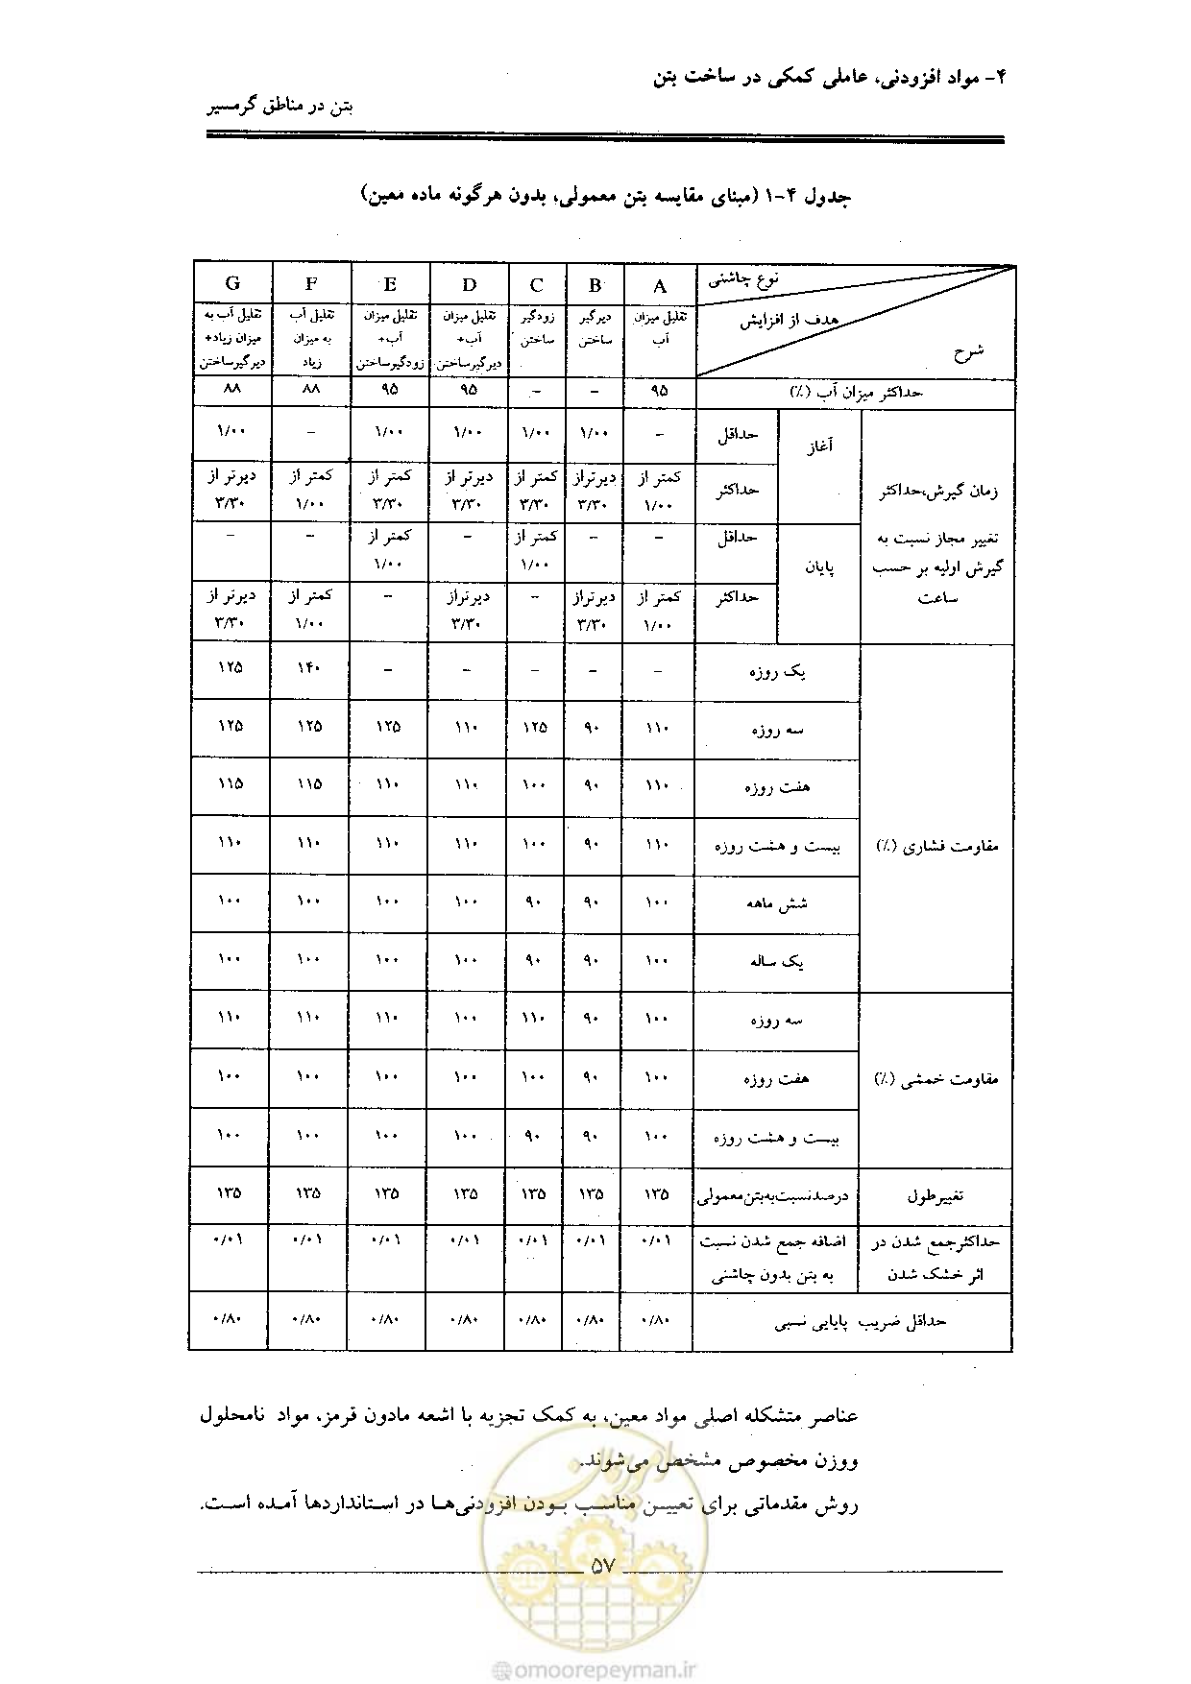 ۴- مواد افزودنی، عاملی کمکی در ساخت بتن
بتن در مناطق گرمسیر
جدول ۴-۱ (مبنای مقایسه بتن معمولی، بدون هرگونه ماده معین)
نوع چاشنی A B C D E F G
هدف از افزایش تقلیل میزان آب دیرگیر ساختن زودگیر ساختن تقلیل میزان آب+ دیرگیرساختن تقلیل میزان آب+ زودگیرساختن تقلیل آب به میزان زیاد تقلیل آب به میزان زیاد+ دیرگیرساختن
شرح
حداکثر میزان آب (٪) ۹۵ – – ۹۵ ۹۵ ۸۸ ۸۸
زمان گیرش،حداکثر تغییر مجاز نسبت به گیرش اولیه بر حسب ساعت
آغاز حداقل – ۱/۰۰ ۱/۰۰ ۱/۰۰ ۱/۰۰ – ۱/۰۰
حداکثر کمتر از ۱/۰۰ دیرتراز ۳/۳۰ کمتر از ۳/۳۰ دیرتر از ۳/۳۰ کمتر از ۳/۳۰ کمتر از ۱/۰۰ دیرتر از ۳/۳۰
پایان حداقل – – کمتر از ۱/۰۰ – کمتر از ۱/۰۰ – –
حداکثر کمتر از ۱/۰۰ دیرتراز ۳/۳۰ – دیرتراز ۳/۳۰ – کمتر از ۱/۰۰ دیرتر از ۳/۳۰
مقاومت فشاری (٪)
یک روزه – – – – – ۱۴۰ ۱۲۵
سه روزه ۱۱۰ ۹۰ ۱۲۵ ۱۱۰ ۱۲۵ ۱۲۵ ۱۲۵
هفت روزه ۱۱۰ ۹۰ ۱۰۰ ۱۱۰ ۱۱۰ ۱۱۵ ۱۱۵
بیست و هشت روزه ۱۱۰ ۹۰ ۱۰۰ ۱۱۰ ۱۱۰ ۱۱۰ ۱۱۰
شش ماهه ۱۰۰ ۹۰ ۹۰ ۱۰۰ ۱۰۰ ۱۰۰ ۱۰۰
یک ساله ۱۰۰ ۹۰ ۹۰ ۱۰۰ ۱۰۰ ۱۰۰ ۱۰۰
مقاومت خمشی (٪)
سه روزه ۱۰۰ ۹۰ ۱۱۰ ۱۰۰ ۱۱۰ ۱۱۰ ۱۱۰
هفت روزه ۱۰۰ ۹۰ ۱۰۰ ۱۰۰ ۱۰۰ ۱۰۰ ۱۰۰
بیست و هشت روزه ۱۰۰ ۹۰ ۹۰ ۱۰۰ ۱۰۰ ۱۰۰ ۱۰۰
تغییرطول درصدنسبت‌به‌بتن‌معمولی ۱۳۵ ۱۳۵ ۱۳۵ ۱۳۵ ۱۳۵ ۱۳۵ ۱۳۵
حداکثرجمع شدن در اثر خشک شدن اضافه جمع شدن نسبت به بتن بدون چاشنی ۰/۰۱ ۰/۰۱ ۰/۰۱ ۰/۰۱ ۰/۰۱ ۰/۰۱ ۰/۰۱
حداقل ضریب پایایی نسبی ۰/۸۰ ۰/۸۰ ۰/۸۰ ۰/۸۰ ۰/۸۰ ۰/۸۰ ۰/۸۰
عناصر متشکله اصلی مواد معین، به کمک تجزیه با اشعه مادون قرمز، مواد نامحلول
ووزن مخصوص مشخص می‌شوند.
روش مقدماتی برای تعیین مناسب بودن افزودنی‌ها در استانداردها آمده است.
۵۷
@omoorepeyman.ir